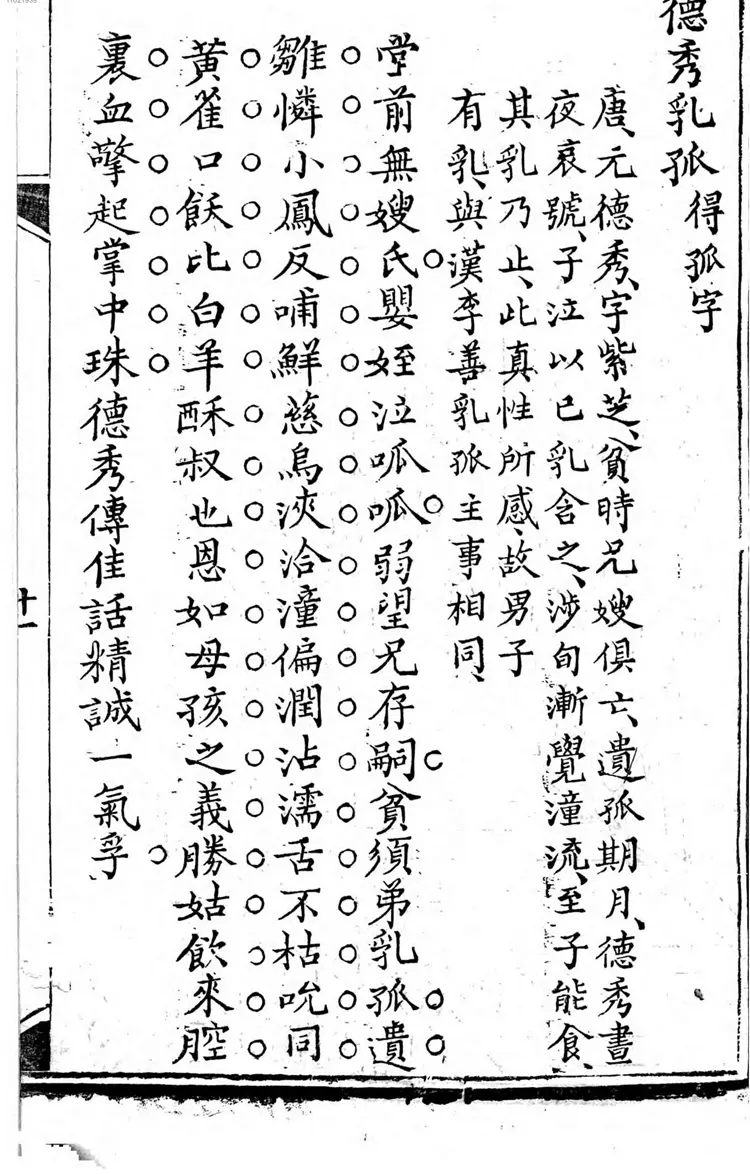 德秀乳孤得孤字
唐元德秀、字紫芝、貧時兄嫂俱亡、遺孤期月、德秀晝
夜哀號、子泣以已乳含之、涉旬漸覺湩流、至子能食、
其乳乃止、此真性所感、故男子
有乳、與漢李善乳孤主事相同、
堂前無嫂氏嬰姪泣呱呱弱望兄存嗣貧須弟乳孤遺
雛憐小鳳反哺鮮慈烏浹洽湩偏潤沾濡舌不枯吮同
黃雀口飫比白羊酥叔也恩如母孩之義勝姑飲來腔
裏血擎起掌中珠德秀傳佳話精誠一氣孚
十一
11021939